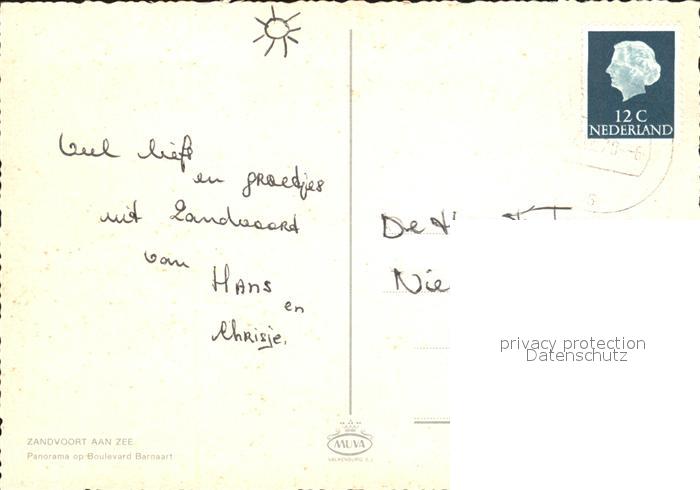 Veel liefs
en groetjes
uit Zandvoort
van
Hans
en
Chrisje.
ZANDVOORT AAN ZEE
Panorama op Boulevard Barnaart
MUVA
VALKENBURG Z.L.
12 C
NEDERLAND
De
Nie
privacy protection
Datenschutz